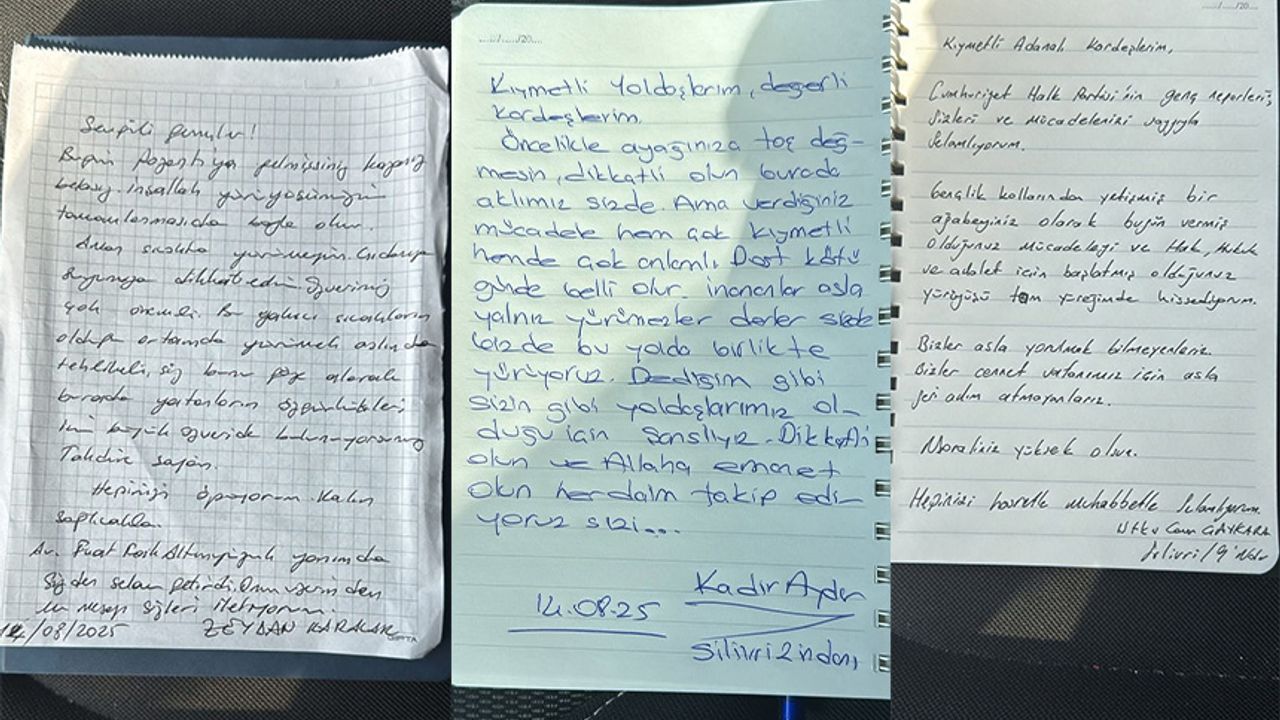 Sevgili gençler!
Bugün Pozantı'ya gelmişsiniz kazasız
belasız. İnşallah yürüyüşünüzün
tamamlanması da böyle olur.
Aman sıcakta yürümeyin. Gıdanıza
suyunuza dikkat edin. Güveniniz
çok önemli. Bu yakıcı sıcakların
olduğu ortamda yürümek aslında
tehlikeli, siz bunu göze alarak
burada yatanların özgürlükleri
için büyük özveride bulunuyorsunuz
Takdire şayan.
Hepinizi öpüyorum. Kalın
sağlıcakla.
Av. Fuat Altınyüzük yanımda
Sizden selam getirdi. Onun üzerinden
bu mesajı sizlere iletiyorum.
14/08/2025 ZEYDAN KARALAR
...../...../20....
Kıymetli Yoldaşlarım, değerli
kardeşlerim.
Öncelikle ayağınıza taş değ-
mesin, dikkatli olun burada
aklımız sizde. Ama verdiğiniz
mücadele hem çok kıymetli
hemde çok anlamlı. Dost kötü
günde belli olur. inananlar asla
yalnız yürümezler derler sizde
bizde bu yolda birlikte
yürüyoruz. Dediğim gibi
sizin gibi yoldaşlarımız ol-
duğu için şanslıyız. Dikkatli
olun ve Allaha emanet
olun herdaim takip edi-
yoruz sizi...
14.08.25
Kadir Aydar
Silivri Zindanı
...../...../20....
Kıymetli Adanalı Kardeşlerim,
Cumhuriyet Halk Partisi'nin genç neferleri;
Sizleri ve mücadelenizi saygıyla
Selamlıyorum.
Gençlik kollarından yetişmiş bir
ağabeyiniz olarak bugün vermiş
olduğunuz mücadeleyi ve Hak, Hukuk
ve adalet için başlatmış olduğunuz
yürüyüşü tam yüreğimde hissediyorum.
Bizler asla yorulmak bilmeyenleriz.
Bizler cennet vatanımız için asla
geri adım atmayanlarız.
Moraliniz yüksek olsun.
Hepinizi hasretle muhabbetle Selamlıyorum.
Utku Caner ÇAYKARA
Silivri / 9 Nolu